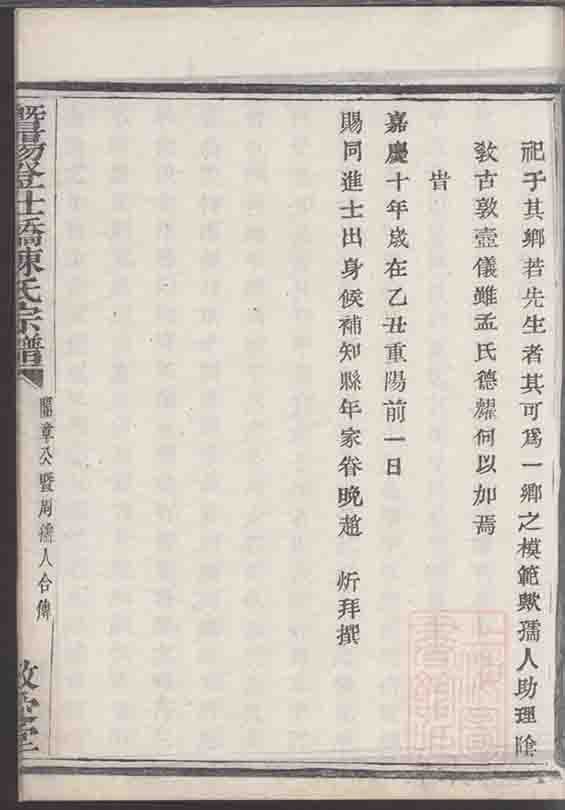 祀于其鄉若先生者其可爲一鄉之模範歟孺人助理陰
敎古敦壼儀雖孟氏德耀何以加焉
旹
嘉慶十年歲在乙丑重陽前一日
賜同進士出身候補知縣年家眷晚趙 炘拜撰
暨陽登仕橋陳氏宗譜
開章公暨周孺人合傳
敦堂